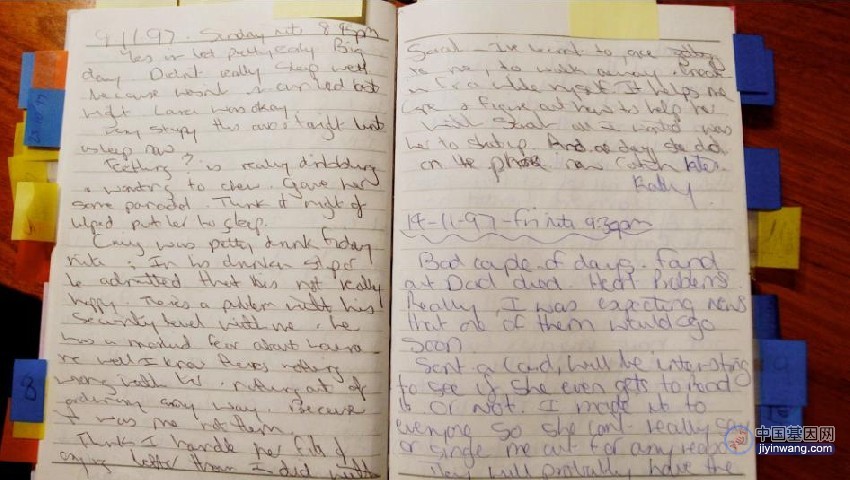 9.11.97. Sunday nite 8.45pm
Yes in bed pretty early Big
day. Didn't really sleep well
because wasnt
night Laura was okay
asleep now
Teething? is really dribbling
& wanting to chew. Gave her
some panadol. Think it might of
helped put her to sleep.
Craig was pretty drunk Friday
nite, In his drunken stupor
he admitted that he's not really
happy. There's a problem with his
security level with me. He
has a marked fear about Laura.
well I know theres nothing
wrong with her. nothing out of
ordinary any way. Because
it was me not them.
Think I handle her fits of
crying better than I did with
Sarah - I've learnt to,
is me, to walk away &
in for a while myself. It helps me
cope & figure out how to help her
With Sarah all I wanted was
her to shut up. And one day she did.
on the phone now catch later.
Kathy
14-11-97 - Fri nite 9:30pm
Bad couple of days. Found
out Dad died. Heart Problems.
Really, I was expecting news
that one of them would go
soon.
Sent a card, will be interesting
to see if she even gets to read
it or not. I made it to
everyone so she can't really say
or single me out for any reason
They will probably have the
8
中国基因网
jiyinwang.com